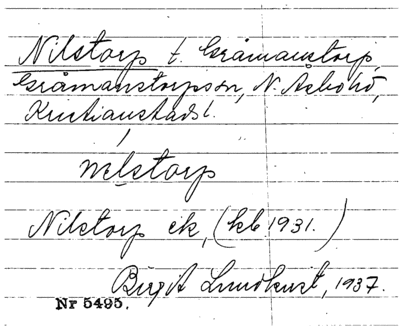 Nilstorp t. Gråmanstorp,
Gråmanstorpsson, N. Åsbo hd,
Kristianstads l.
nil̬storp
Nilstorp ek, (kb 1931.)
Birgit Lundkvist, 1937.
Nr 5495.